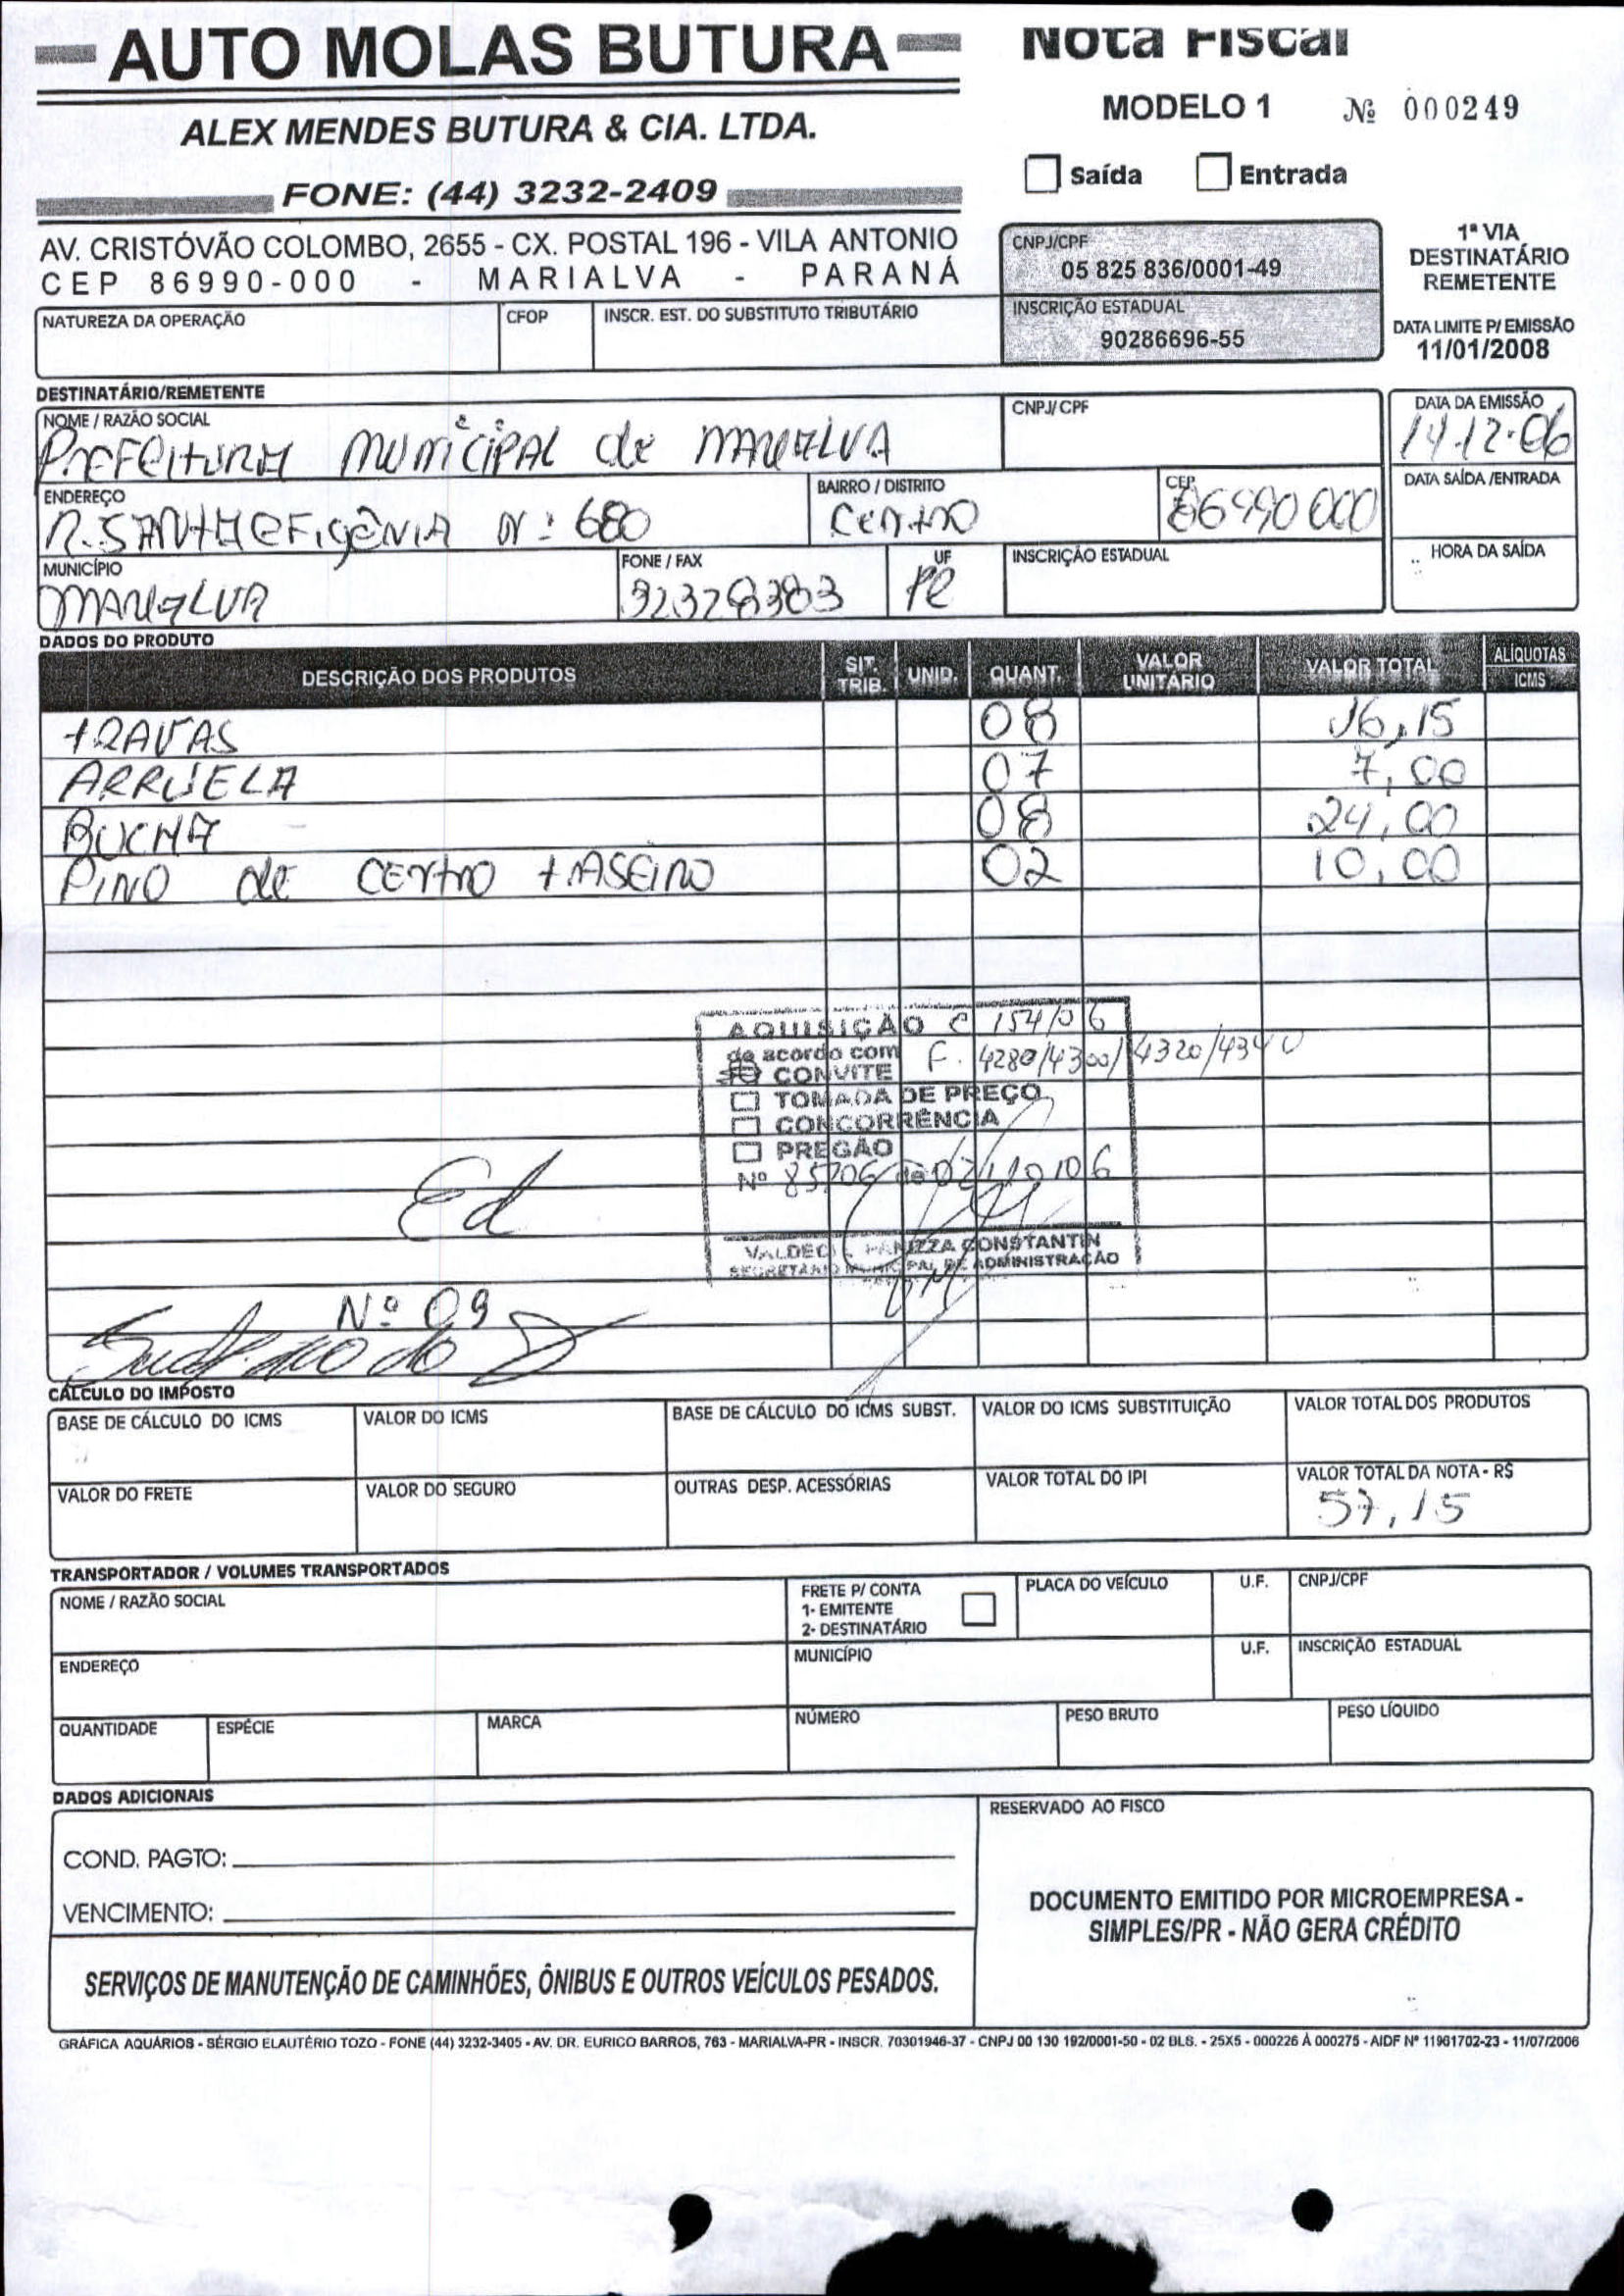 AUTO MOLAS BUTURA
ALEX MENDES BUTURA & CIA. LTDA.
FONE: (44) 3232-2409
AV. CRISTÓVÃO COLOMBO, 2655 - CX. POSTAL 196 - VILA ANTONIO
CEP 86990-000 - MARIALVA - PARANÁ
Nota Fiscal
MODELO 1 Nº 000249
Saída Entrada
CNPJ/CPF
05 825 836/0001-49
INSCRIÇÃO ESTADUAL
90286696-55
1ª VIA
DESTINATÁRIO
REMETENTE
DATA LIMITE P/ EMISSÃO
11/01/2008
NATUREZA DA OPERAÇÃO CFOP INSCR. EST. DO SUBSTITUTO TRIBUTÁRIO
DESTINATÁRIO/REMETENTE
NOME / RAZÃO SOCIAL CNPJ/CPF DATA DA EMISSÃO
Prefeitura municipal de MARIALVA 14-12-06
ENDEREÇO BAIRRO / DISTRITO CEP DATA SAÍDA /ENTRADA
R. SANTA EFIGÊNIA Nº 680 Centro 86990000
MUNICÍPIO FONE / FAX UF INSCRIÇÃO ESTADUAL HORA DA SAÍDA
MARIALVA 32328383 PR
DADOS DO PRODUTO
DESCRIÇÃO DOS PRODUTOS SIT. TRIB. UNID. QUANT. VALOR UNITÁRIO VALOR TOTAL ALÍQUOTAS ICMS
TRAVAS 08 16,15
ARRUELA 07 7,00
BUCHA 08 24,00
PINO de CENTRO TRASEIRO 02 10,00
AQUISIÇÃO C 154/06
de acordo com F. 4280/4300/4320/4340
CONVITE
TOMADA DE PREÇO
CONCORRÊNCIA
PREGÃO
Nº 85/06 de 02/10/06
Ed
VALDECIL PANIZZA CONSTANTIN
SECRETÁRIO MUNICIPAL DE ADMINISTRAÇÃO
Nº 09
CÁLCULO DO IMPOSTO
BASE DE CÁLCULO DO ICMS VALOR DO ICMS BASE DE CÁLCULO DO ICMS SUBST. VALOR DO ICMS SUBSTITUIÇÃO VALOR TOTAL DOS PRODUTOS
VALOR DO FRETE VALOR DO SEGURO OUTRAS DESP. ACESSÓRIAS VALOR TOTAL DO IPI VALOR TOTAL DA NOTA - R$
57,15
TRANSPORTADOR / VOLUMES TRANSPORTADOS
NOME / RAZÃO SOCIAL FRETE P/ CONTA PLACA DO VEÍCULO U.F. CNPJ/CPF
1- EMITENTE
2- DESTINATÁRIO
ENDEREÇO MUNICÍPIO U.F. INSCRIÇÃO ESTADUAL
QUANTIDADE ESPÉCIE MARCA NÚMERO PESO BRUTO PESO LÍQUIDO
DADOS ADICIONAIS
COND. PAGTO:
VENCIMENTO:
SERVIÇOS DE MANUTENÇÃO DE CAMINHÕES, ÔNIBUS E OUTROS VEÍCULOS PESADOS.
RESERVADO AO FISCO
DOCUMENTO EMITIDO POR MICROEMPRESA -
SIMPLES/PR - NÃO GERA CRÉDITO
GRÁFICA AQUÁRIOS - SÉRGIO ELAUTÉRIO TOZO - FONE (44) 3232-3405 - AV. DR. EURICO BARROS, 763 - MARIALVA-PR - INSCR. 70301946-37 - CNPJ 00 130 192/0001-50 - 02 BLS. - 25X5 - 000226 À 000275 - AIDF Nº 11961702-23 - 11/07/2006